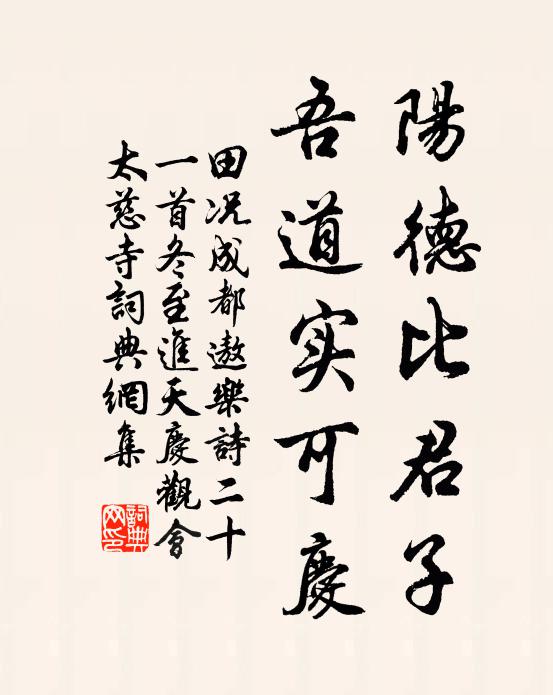 陽德比君子
吾道实可慶
田况成都遨樂詩二十
一首冬至進天慶觀會
太慈寺詞典網集
詞典
网印